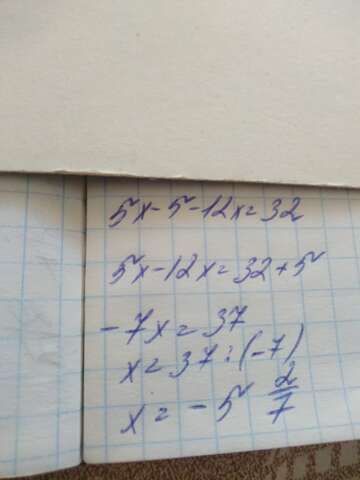 5x-5-12x=32
5x-12x=32+5
-7x=37
x=37:(-7)
x=-5 2/7